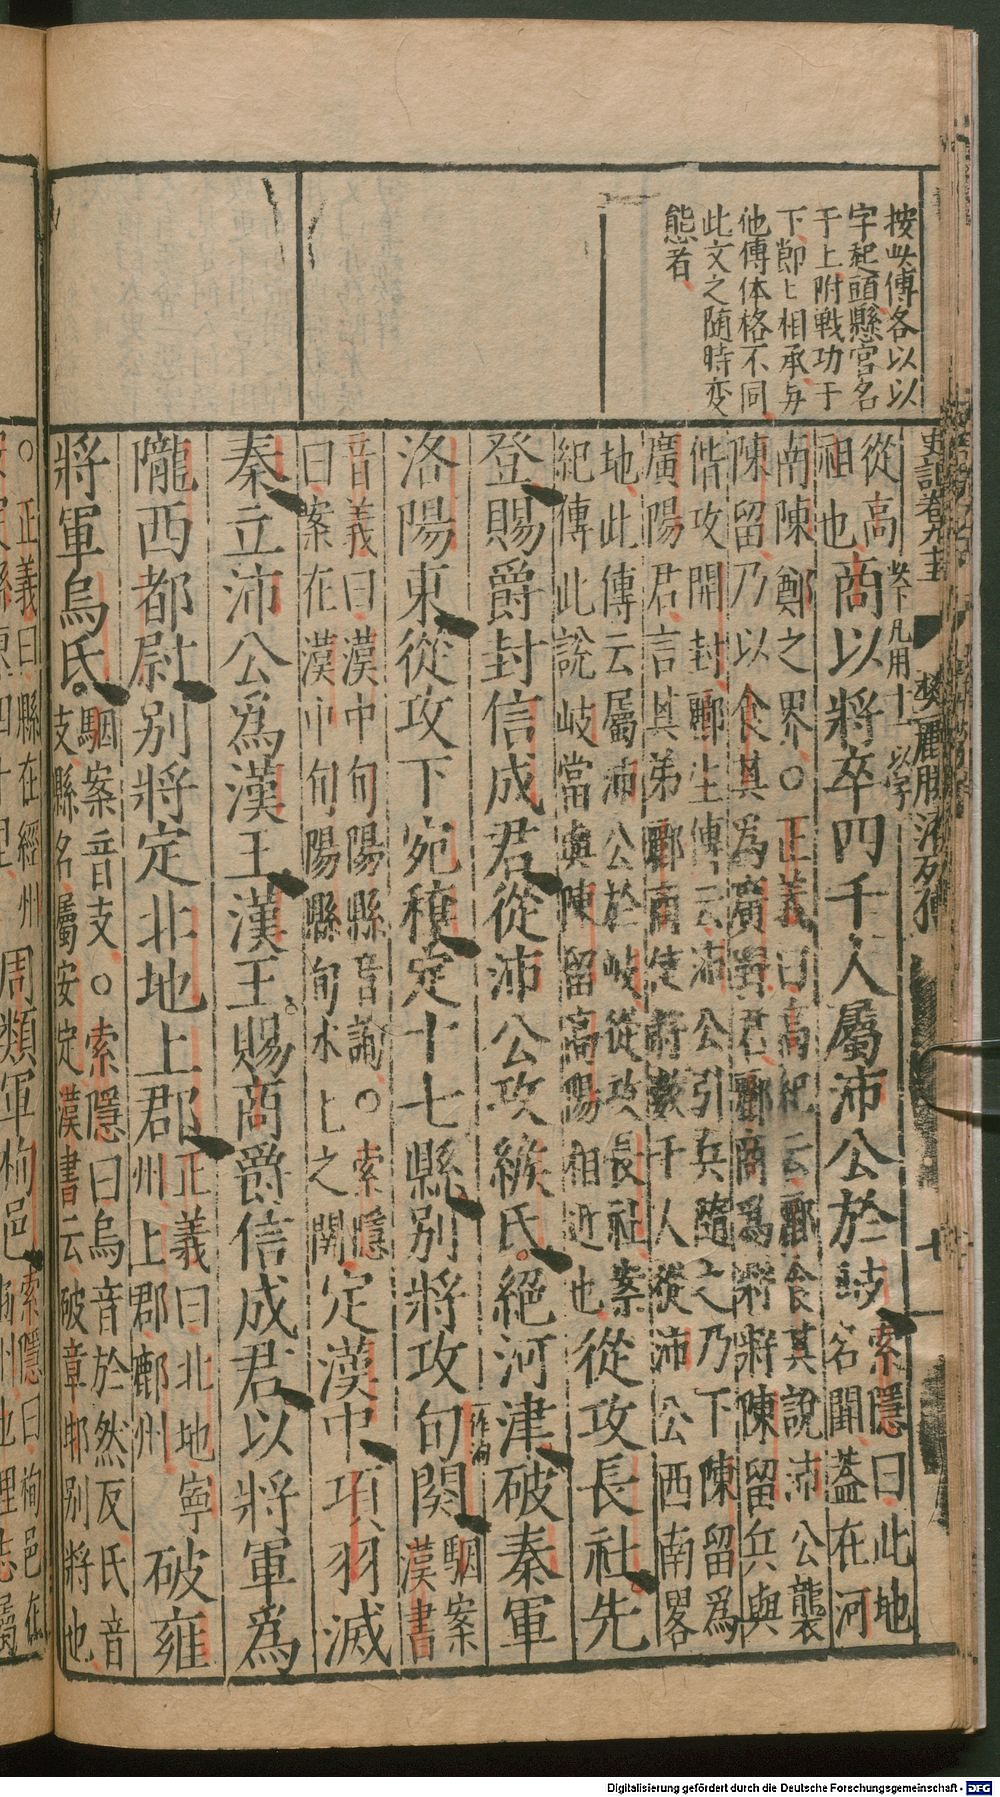 按此傳各以以
字起頭懸官名
于上附戰功于
下節〻相承与
他傳体格不同
此文之随時变
態者
史記卷九十五 樊酈滕灌列傳
從高祖也商以將卒四千人屬沛公於岐索隱曰此地名闕蓋在河
此下凡用十一以字
南陳鄭之界○正義曰高紀云酈食其說沛公襲
陳留乃以食其爲廣野君酈商爲將將陳留兵與
偕攻開封酈生傳云沛公引兵隨之乃下陳留爲
廣陽君言其弟酈商使將數千人從沛公西南畧
地此傳云屬沛公於岐從攻長社案
紀傳此說岐當與陳留高陽相近也從攻長社先
登賜爵封信成君從沛公攻緱氏絕河津破秦軍
洛陽東從攻下宛穰定十七縣別將攻旬關一作洵駰案漢書
音義曰漢中旬陽縣音詢○索隱
曰案在漢中旬陽縣旬水上之關定漢中項羽滅
秦立沛公爲漢王漢王賜商爵信成君以將軍爲
隴西都尉別將定北地上郡正義曰北地寧州上郡鄜州破雍
將軍烏氏駰案音支○索隱曰烏音於然反氏音
支縣名屬安定漢書云破章邯別將也
○正義曰縣在經州
周類軍栒邑索隱曰栒邑在